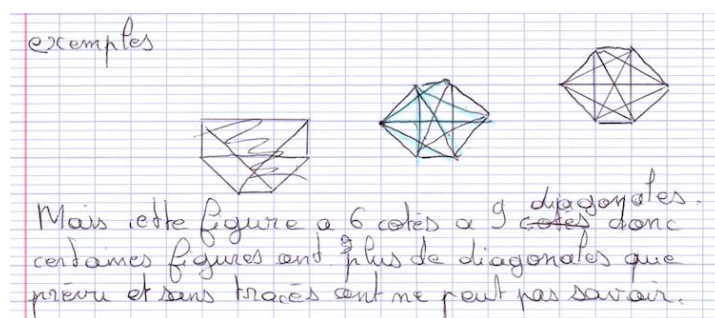 exemples
diagonales.
Mais cette figure a 6 cotés a 9 cotés donc
certaines figures ont plus de diagonales que
prévu et sans tracés ont ne peut pas savoir.